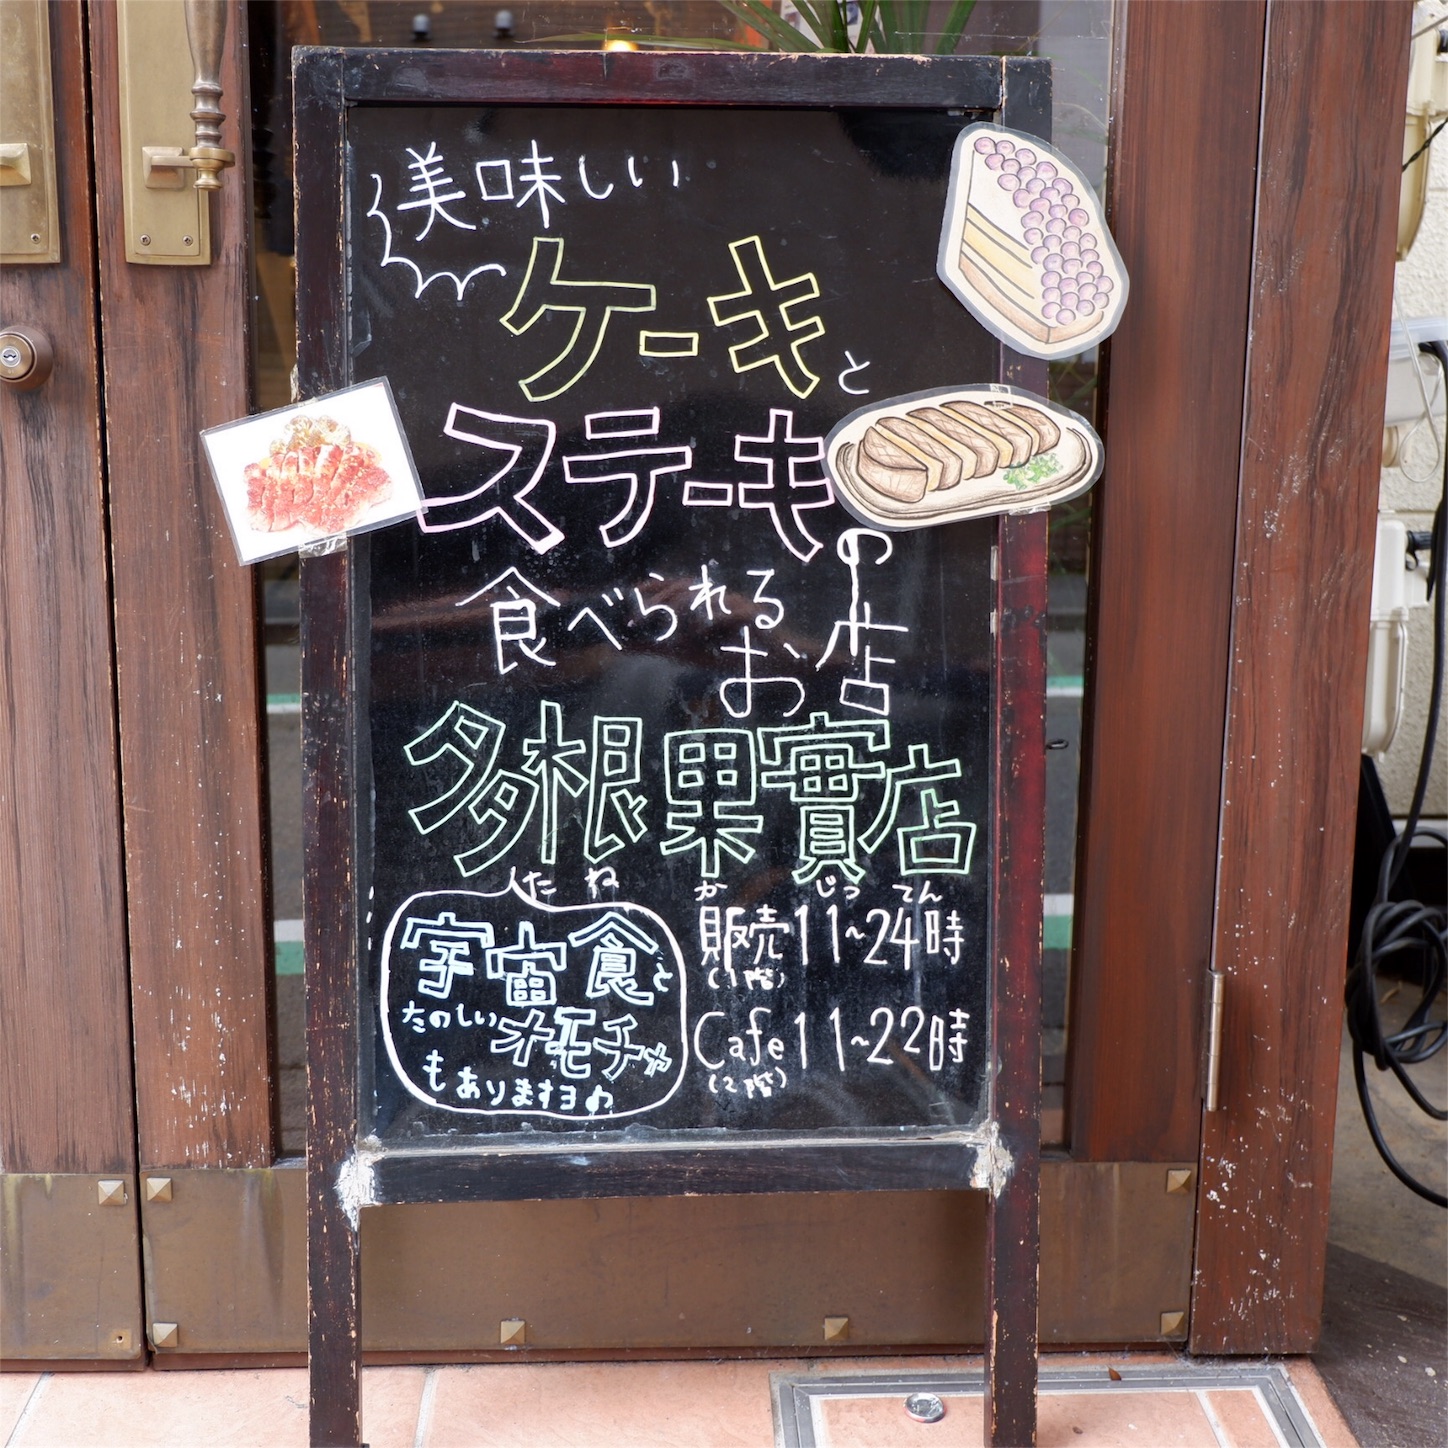 美味しい
ケーキと
ステーキの
食べられる
お店
多根果實店
たね か じつ てん
販売11~24時
(1階)
Cafe11~22時
(2階)
宇宙食と
たのしいオモチャ
もありますヨ